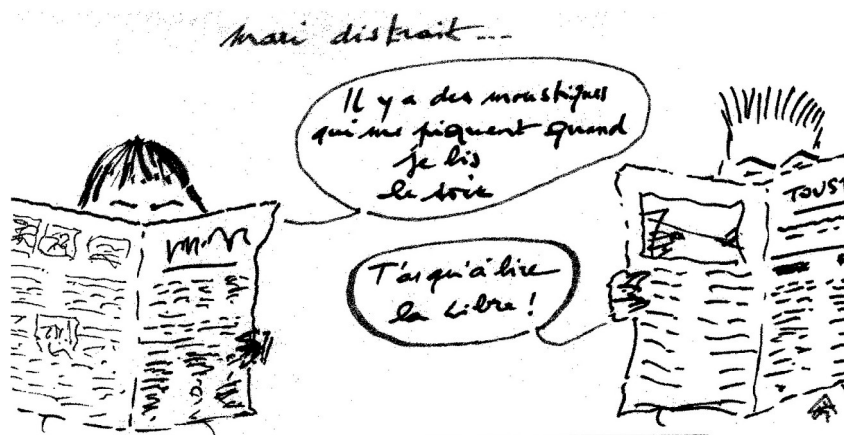 mari distrait...
Il y a des moustiques
qui me piquent quand
je lis
le soir
T'as qu'à lire
la Libre !
TOUS